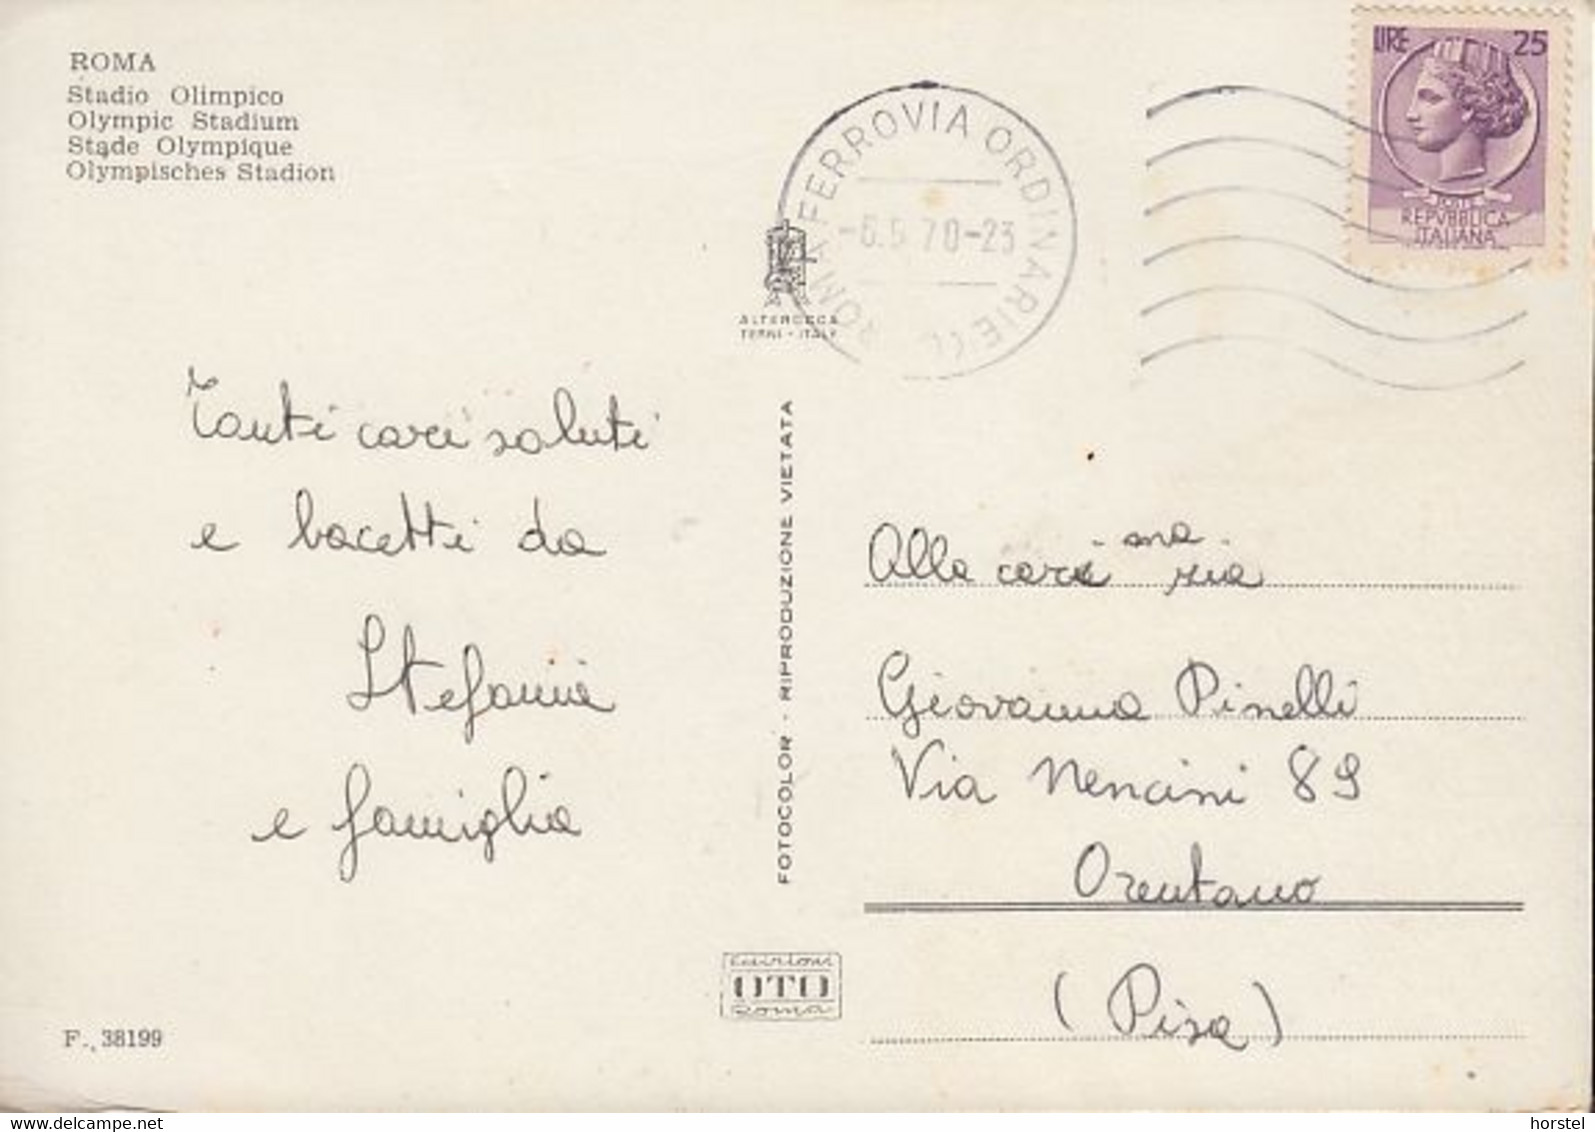 ROMA
Stadio Olimpico
Olympic Stadium
Stade Olympique
Olympisches Stadion
LIRE 25
POSTE
REPVBBLICA
ITALIANA
ROMA FERROVIA ORDINARIE
70-23
ALTEROCCA
TERNI - ITALY
Tanti cari saluti
e bacetti da
Stefania
e famiglia
FOTOCOLOR - RIPRODUZIONE VIETATA
Alla cara ma zia
Giovanna Pinelli
Via Nencini 89
Orentano
(Pisa)
Edizioni
OTO
Roma
F., 38199
hippostcard.com
horstel